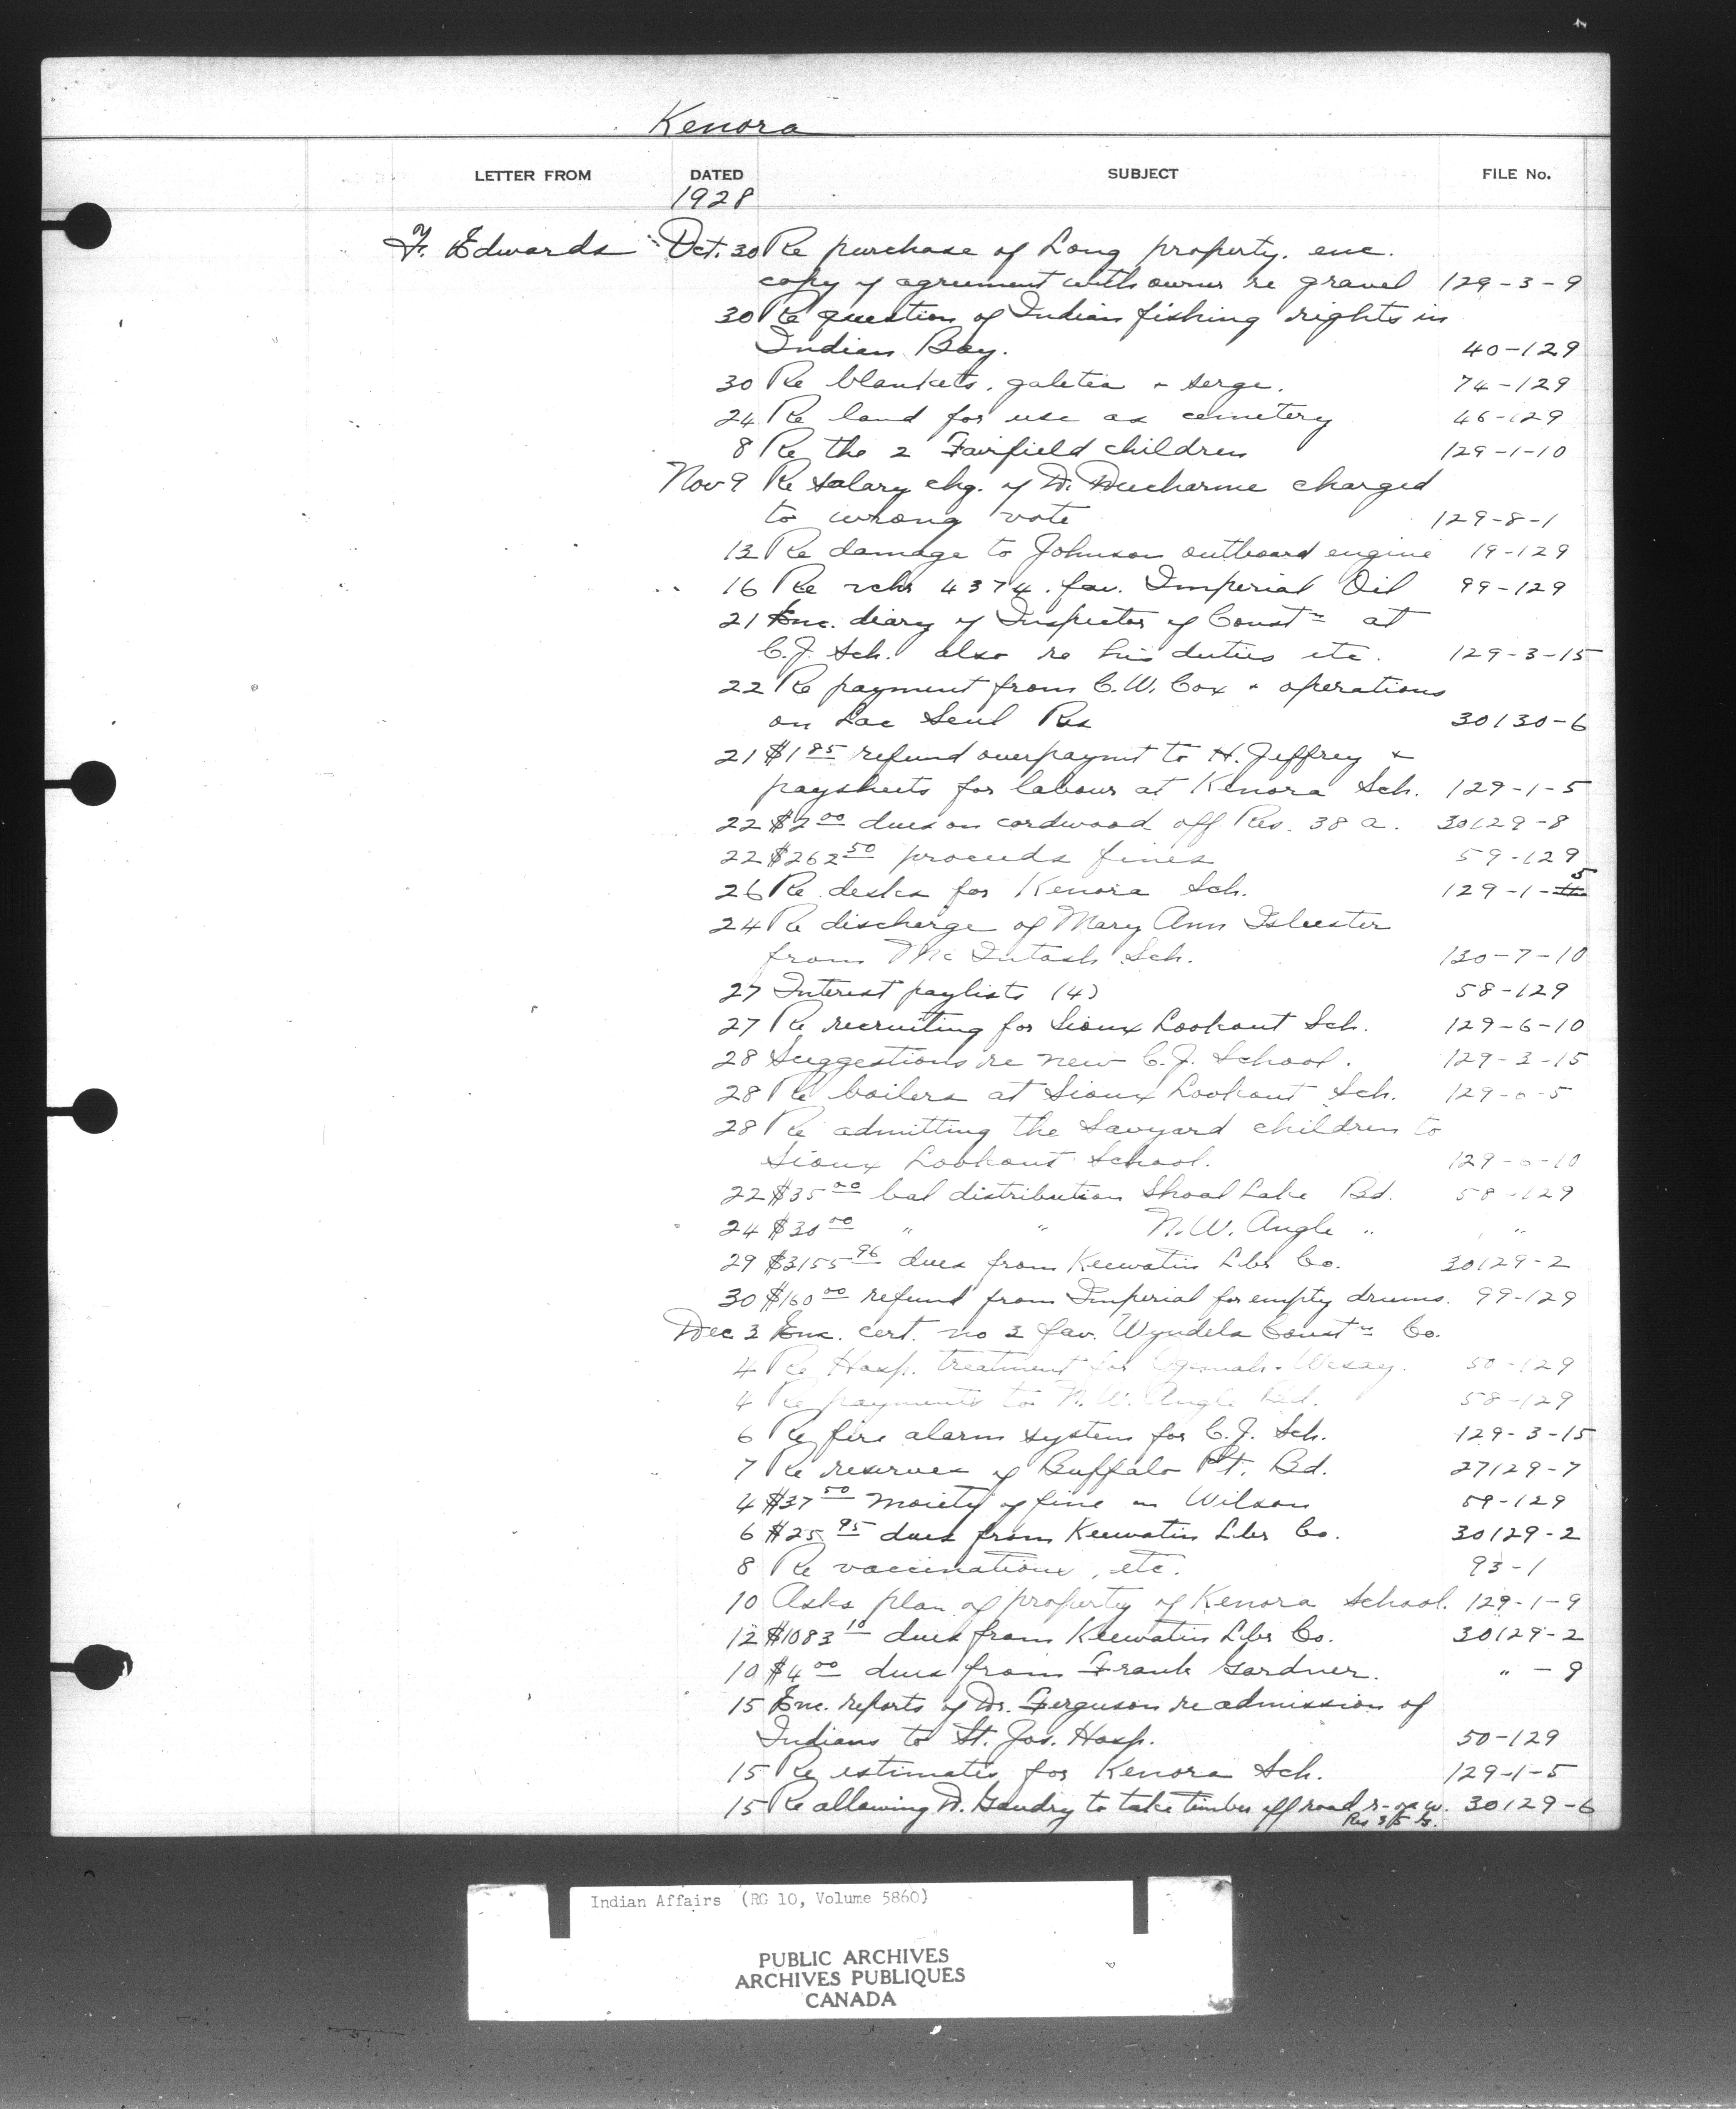 Kenora
LETTER FROM DATED SUBJECT FILE No.
1928
F. Edwards Oct. 30 Re purchase of Long property. enc.
copy of agreement with owner re gravel 129-3-9
30 Re question of Indian fishing rights in
Indian Bay. 40-129
30 Re blankets, galetea & serge. 74-129
24 Re land for use as cemetery 46-129
8 Re the 2 Fairfield children 129-1-10
Nov 9 Re salary chq. of D. Ducharme charged
to wrong vote 129-8-1
13 Re damage to Johnson outboard engine 19-129
16 Re vchr 4374. fav. Imperial Oil 99-129
21 Enc. diary of Inspector of Constn at
C.J. Sch. also re his duties etc. 129-3-15
22 Re payment from C.W. Cox & operations
on Lac Seul Res 30130-6
21 $1 85 refund overpaymt to H. Jeffrey &
paysheets for labour at Kenora Sch. 129-1-5
22 $2 00 dues on cordwood off Res. 38 a. 30129-8
22 $262 50 proceeds fines 59-129
26 Re desks for Kenora Sch. 129-1-5
24 Re discharge of Mary Ann Isbester
from McIntosh Sch. 130-7-10
27 Interest paylists (4) 58-129
27 Re recruiting for Sioux Lookout Sch. 129-6-10
28 Suggestions re new C.J. School. 129-3-15
28 Re boilers at Sioux Lookout Sch. 129-6-5
28 Re admitting the Savyard children to
Sioux Lookout School. 129-6-10
22 $35 00 bal distribution Shoal Lake Bd. 58-129
24 $30 00 " " N.W. Angle " "
29 $3155 96 dues from Keewatin Lbr Co. 30129-2
30 $160 00 refund from Imperial for empty drums. 99-129
Dec 3 Enc. cert. no 2 fav. Wyndels Constn Co.
4 Re Hosp. treatment for 50-129
4 Re payments to N.W. Angle Bd. 58-129
6 Re fire alarm system for C.J. Sch. 129-3-15
7 Re reserves of Buffalo Pt. Bd. 27129-7
4 $37 50 moiety of fine on Wilson 59-129
6 $25 95 dues from Keewatin Lbr Co. 30129-2
8 Re vaccinations, etc. 93-1
10 Asks plan of property of Kenora School. 129-1-9
12 $1083 10 dues from Keewatin Lbr Co. 30129-2
10 $4 00 dues from Frank Gardner. " - 9
15 Enc. reports of Dr. Ferguson re admission of
Indians to St. Jos. Hosp. 50-129
15 Re estimates for Kenora Sch. 129-1-5
15 Re allowing D. Gaudry to take timber off road r-of w. 30129-6
Res 35 G.
Indian Affairs (RG 10, Volume 5860)
PUBLIC ARCHIVES
ARCHIVES PUBLIQUES
CANADA